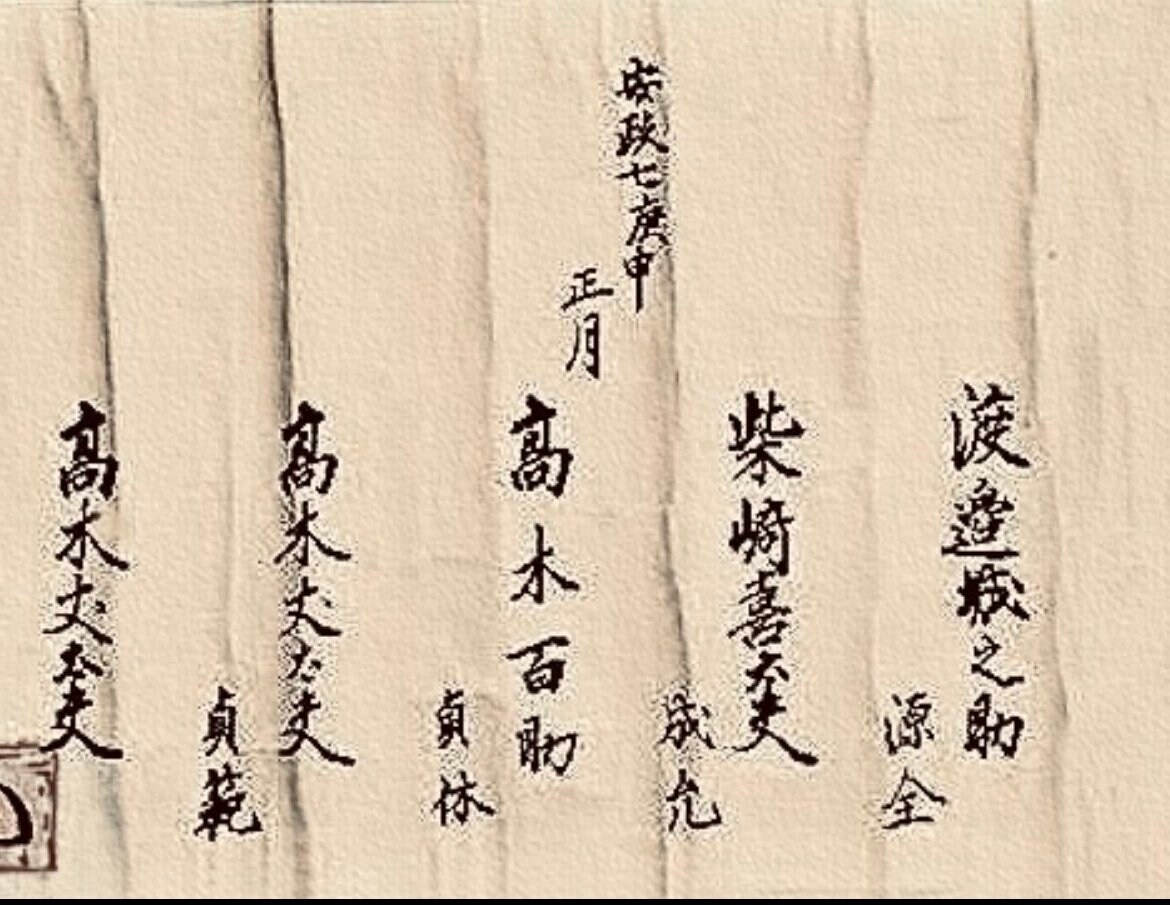 渡邉城之助
源全
柴崎喜太夫
成允
安政七庚申
正月
高木百助
貞休
高木丈太夫
貞範
高木丈太夫